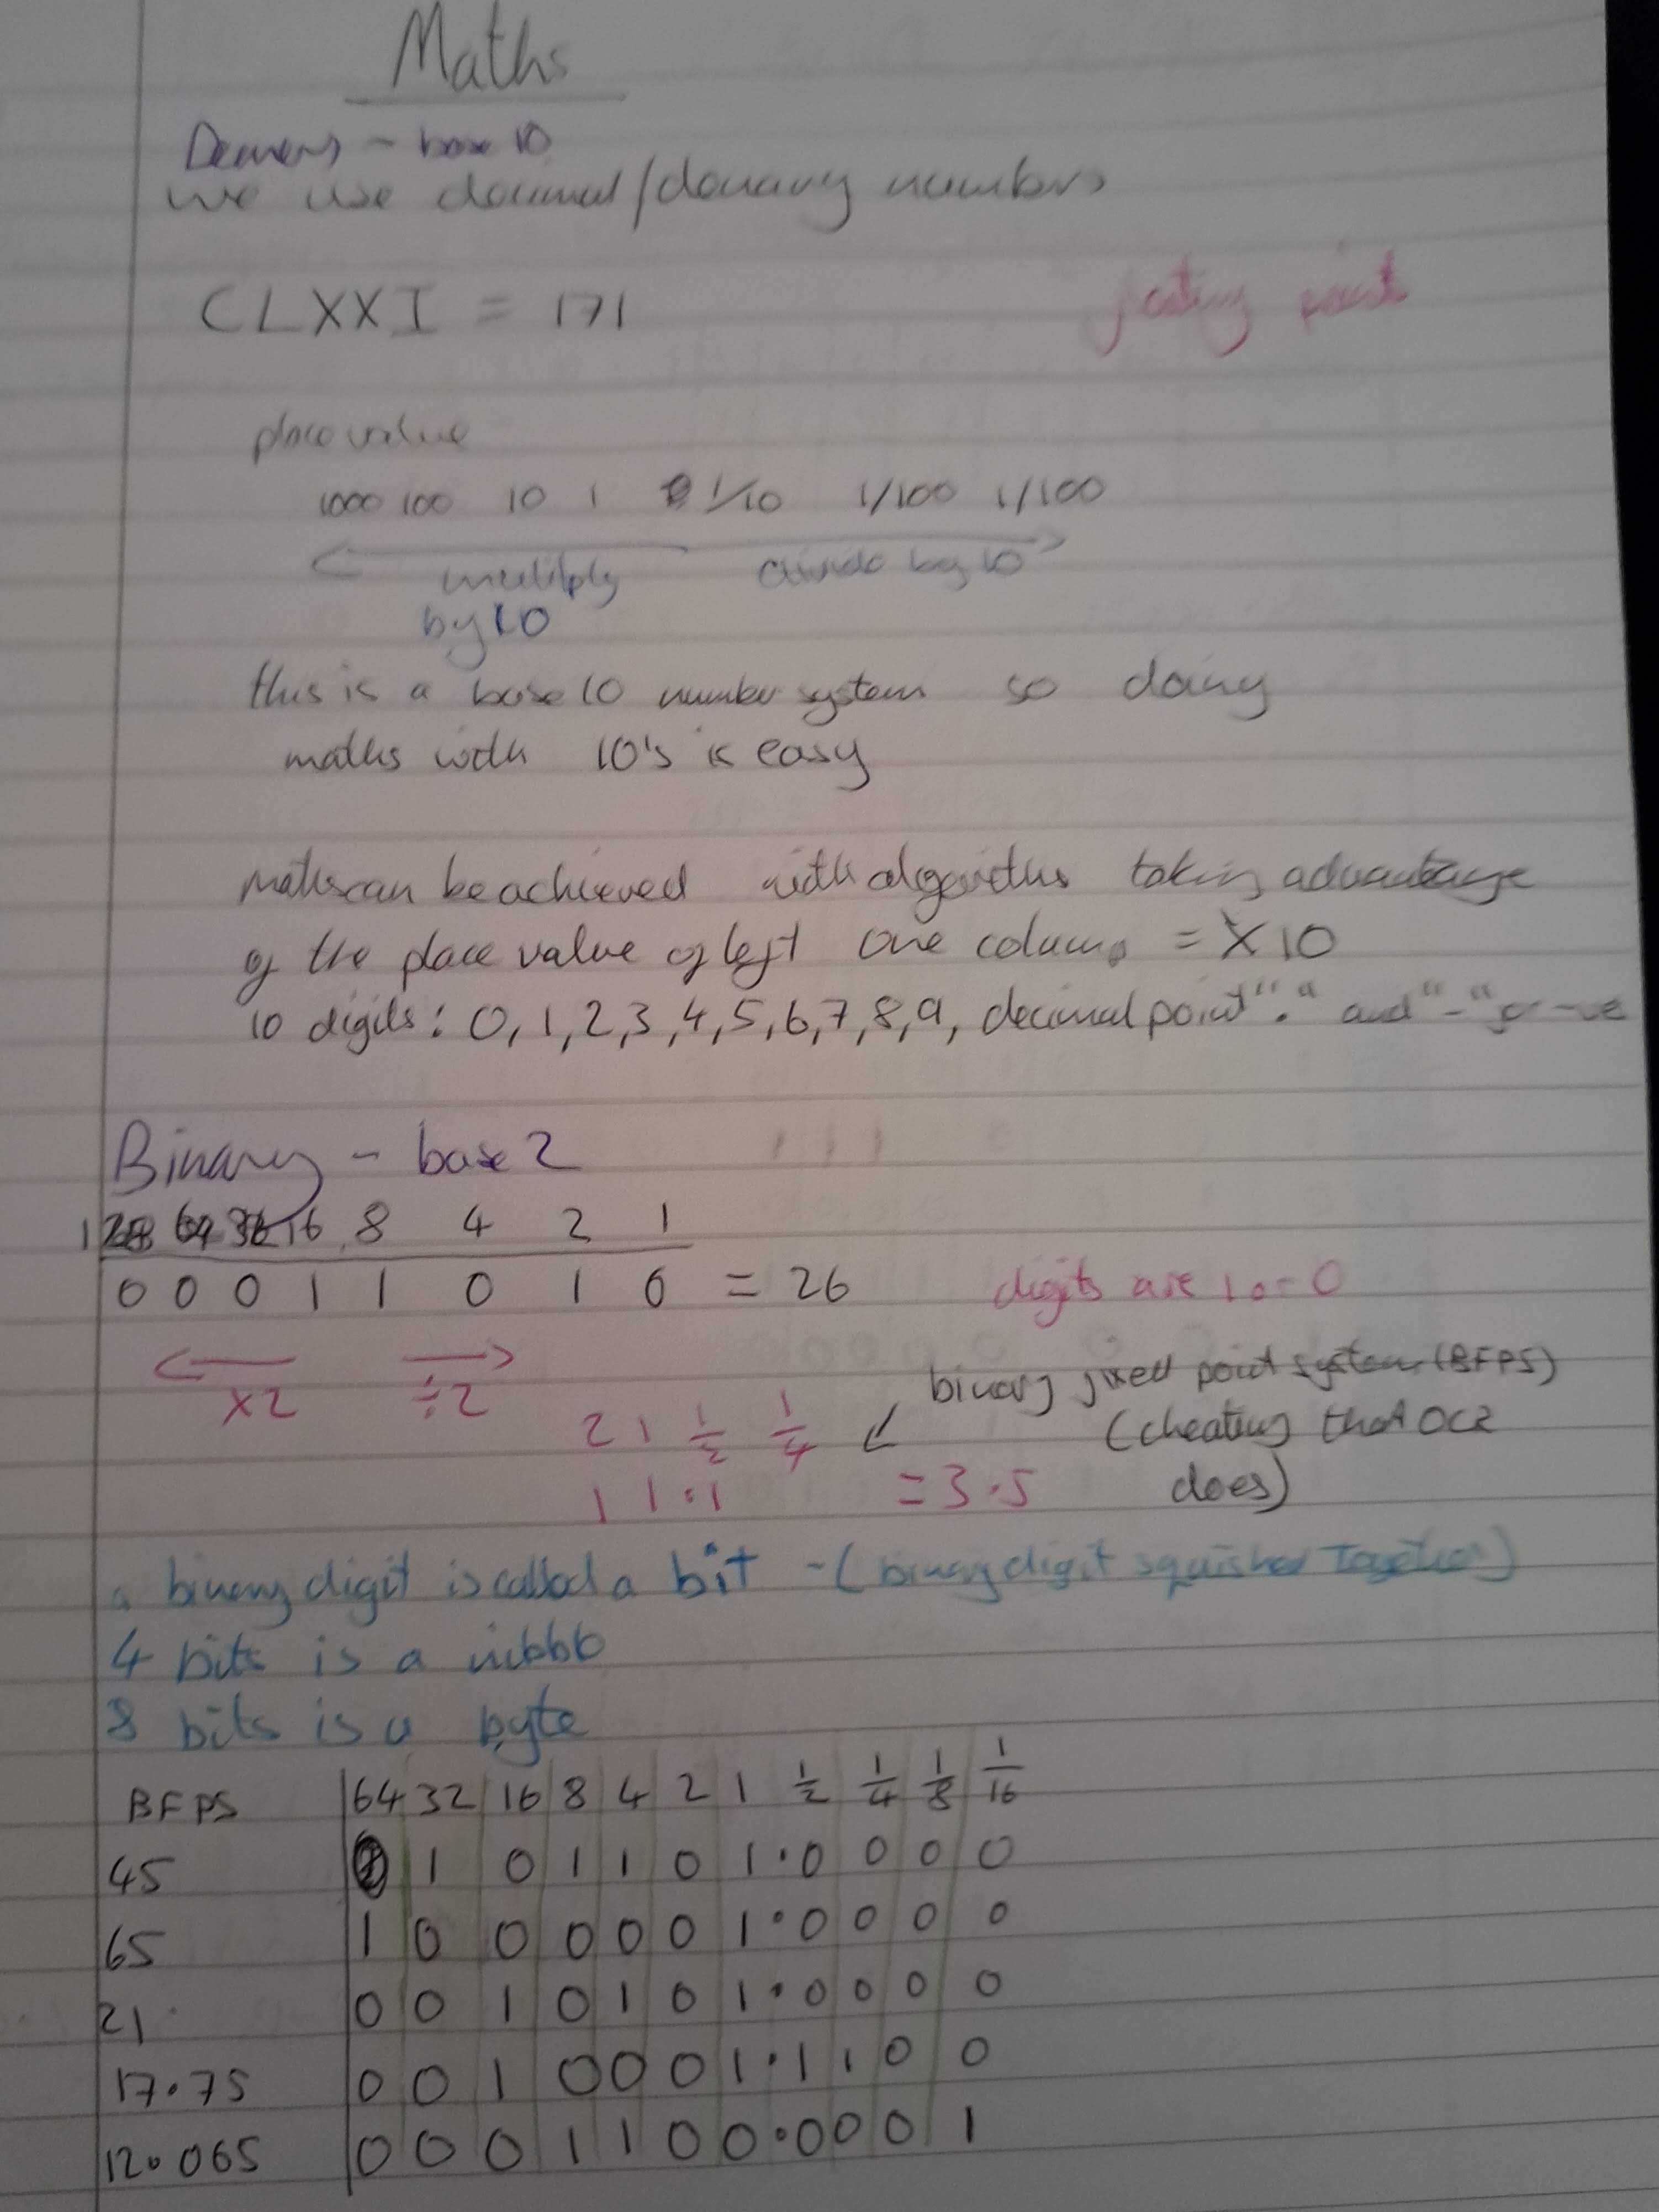 Maths
Denary - base 10
we use decimal/denary numbers
CLXXI = 171
floating point
place value
1000 100 10 1 1/10 1/100 1/100
multiply divide by 10
by 10
this is a base 10 number system so doing
maths with 10's is easy
maths can be achieved with algorithms taking advantage
of the place value of left one column = X10
10 digits: 0, 1, 2, 3, 4, 5, 6, 7, 8, 9, decimal point "." and "-" for -ve
Binary - base 2
128 64 32 16 8 4 2 1
0 0 0 1 1 0 1 0 = 26
digits are 1 or 0
×2 ÷2
binary fixed point system (BFPS)
2 1 1/2 1/4
(cheating that OCR
1 1.1 = 3.5
does)
a binary digit is called a bit - (binary digit squished together)
4 bits is a nibble
8 bits is a byte
BFPS 64 32 16 8 4 2 1 1/2 1/4 1/8 1/16
45 0 1 0 1 1 0 1.0 0 0 0
65 1 0 0 0 0 0 1.0 0 0 0
21 0 0 1 0 1 0 1.0 0 0 0
17.75 0 0 1 0 0 0 1.1 1 0 0
12.065 0 0 0 1 1 0 0.0 0 0 1